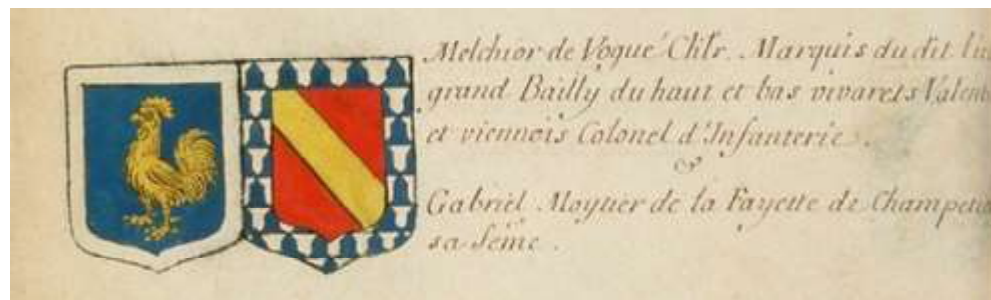 Melchior de Vogué Chlr. Marquis du dit
grand Bailly du haut et bas vivarets
et viennois Colonel d'Infanterie.
&
Gabriel Moytier de la Fayette de
sa feme.